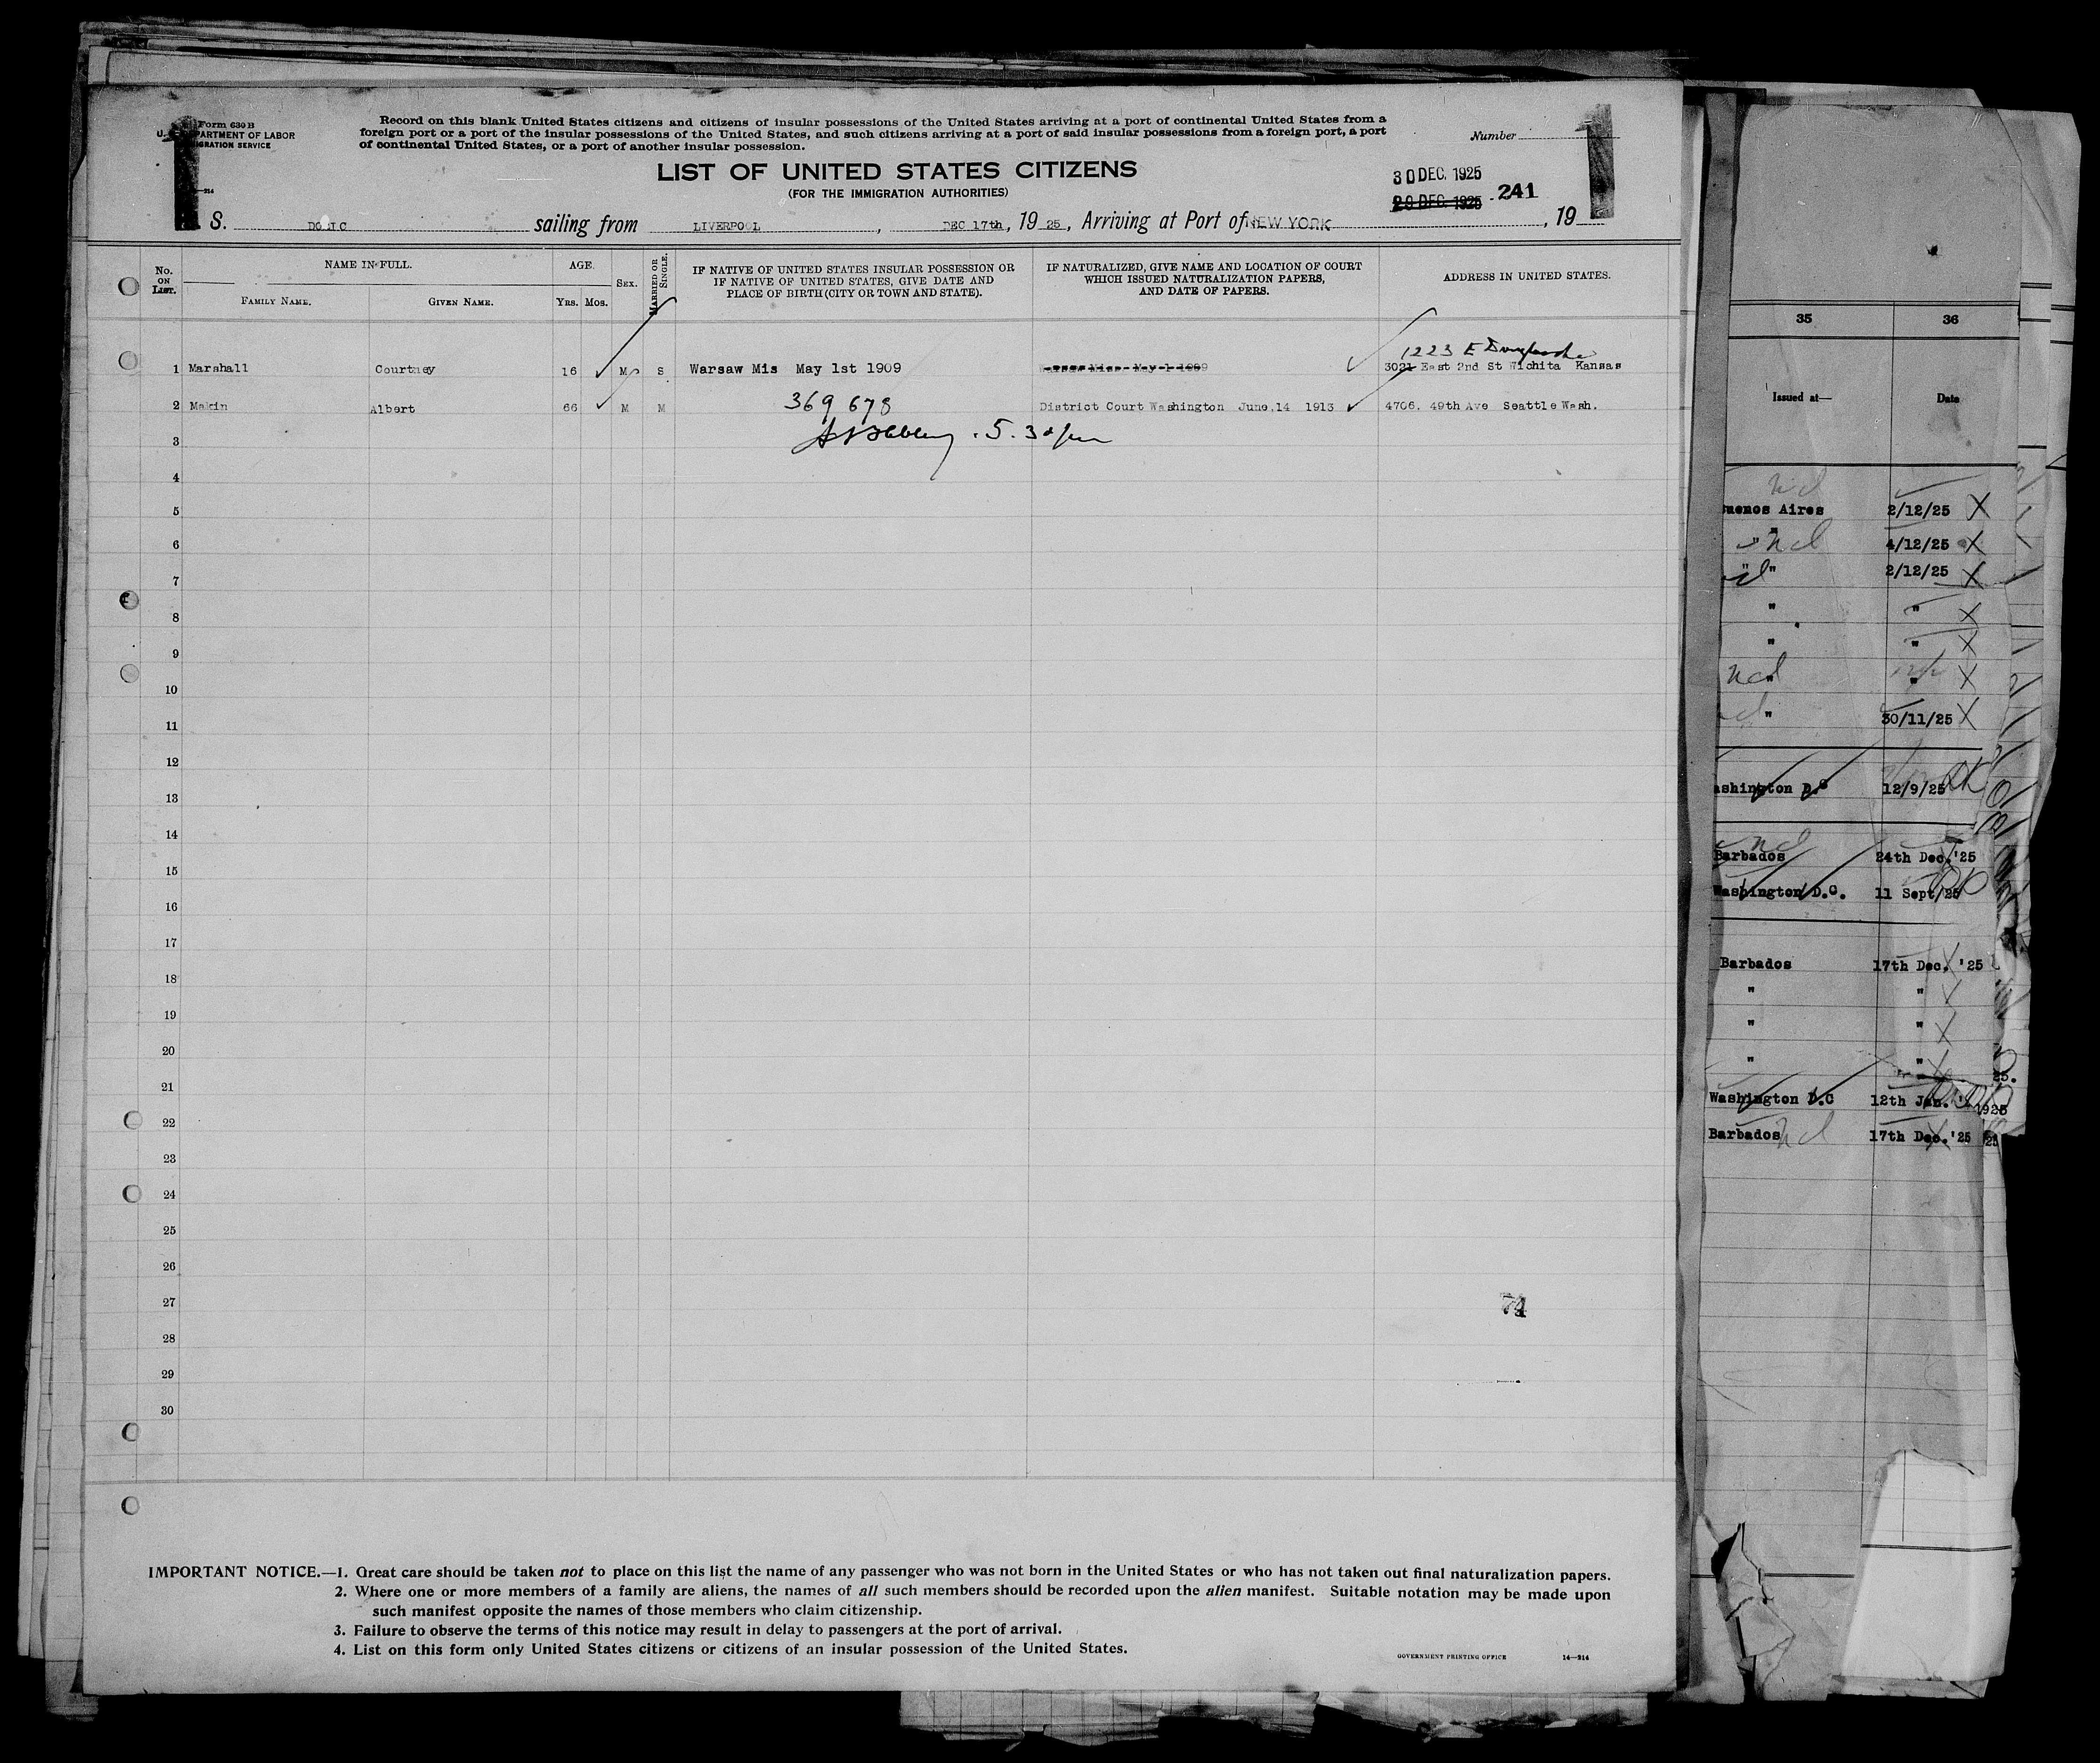 Form 630 B
U. S. DEPARTMENT OF LABOR
IMMIGRATION SERVICE
Record on this blank United States citizens and citizens of insular possessions of the United States arriving at a port of continental United States from a
foreign port or a port of the insular possessions of the United States, and such citizens arriving at a port of said insular possessions from a foreign port, a port
of continental United States, or a port of another insular possession.
Number
LIST OF UNITED STATES CITIZENS
(FOR THE IMMIGRATION AUTHORITIES)
30 DEC. 1925
29 DEC. 1925 - 241
S. DORIC sailing from LIVERPOOL, DEC 17th, 19 25, Arriving at Port of NEW YORK, 19
No. ON LIST.
NAME IN FULL.
FAMILY NAME.
GIVEN NAME.
AGE.
YRS. MOS.
SEX.
MARRIED OR SINGLE.
IF NATIVE OF UNITED STATES INSULAR POSSESSION OR
IF NATIVE OF UNITED STATES, GIVE DATE AND
PLACE OF BIRTH (CITY OR TOWN AND STATE).
IF NATURALIZED, GIVE NAME AND LOCATION OF COURT
WHICH ISSUED NATURALIZATION PAPERS,
AND DATE OF PAPERS.
ADDRESS IN UNITED STATES.
1223 E
1 Marshall Courtney 16 M S Warsaw Mis May 1st 1909 3021 East 2nd St Wichita Kansas
2 Makin Albert 66 M M 369 678 District Court Washington June,14 1913 4706. 49th Ave Seattle Wash.
3 5.30 pm
4
5
6
7
8
9
10
11
12
13
14
15
16
17
18
19
20
21
22
23
24
25
26
27
28
29
30
74
IMPORTANT NOTICE.—1. Great care should be taken not to place on this list the name of any passenger who was not born in the United States or who has not taken out final naturalization papers.
2. Where one or more members of a family are aliens, the names of all such members should be recorded upon the alien manifest. Suitable notation may be made upon
such manifest opposite the names of those members who claim citizenship.
3. Failure to observe the terms of this notice may result in delay to passengers at the port of arrival.
4. List on this form only United States citizens or citizens of an insular possession of the United States.
GOVERNMENT PRINTING OFFICE 14—914
35 36
Issued at— Date
Buenos Aires 2/12/25 X
" 4/12/25 X
" 2/12/25 X
" " X
" " X
" " X
" 30/11/25 X
Washington D.C 12/9/25
Barbados 24th Dec.'25
Washington D.C. 11 Sept/25
Barbados 17th Dec. '25
" " X
" " X
" " X
Washington D.C 12th Jan. 1925
Barbados 17th Dec.'25